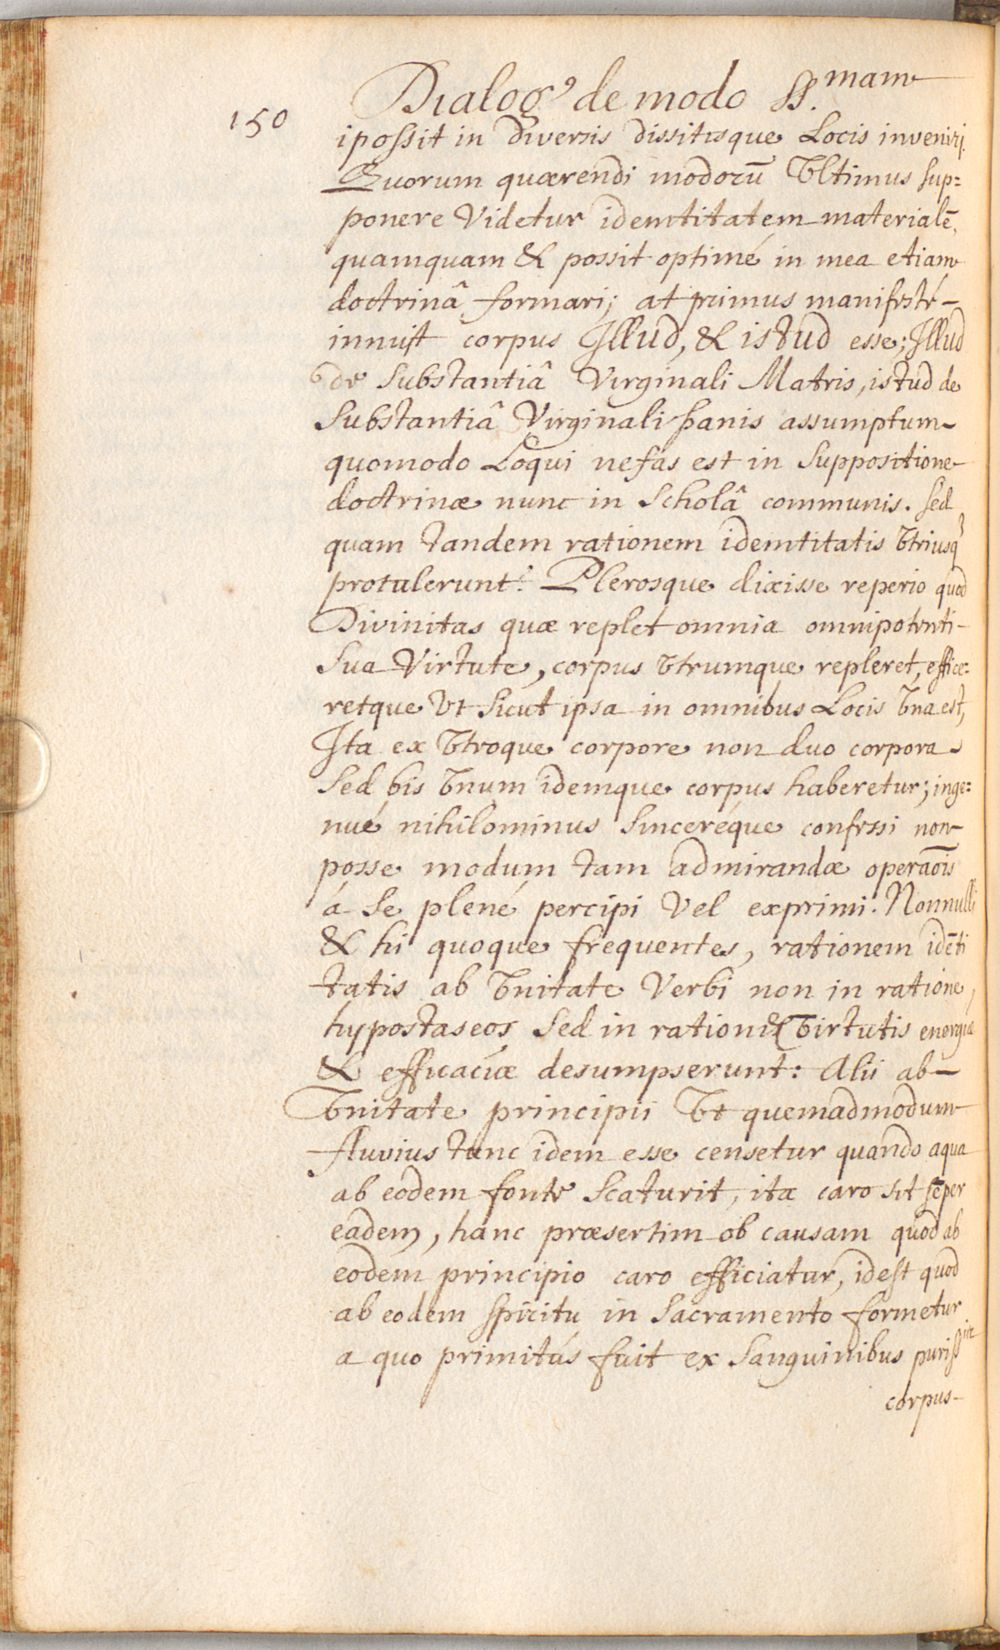 150
Dialog9 de modo SS.mam
ipossit in diversis dissitisque Locis inveniri.
Quorum quærendi modorū Vltimus sup=
ponere Videtur idemtitatem materialē,
quamquam & possit optimé in mea etiam
doctrinâ formari; at primus manifesté
innuit corpus Illud, & istud esse; Illud
de Substantiâ Virginali Matris, istud de
Substantiâ Virginali panis assumptum
quomodo Loqui nefas est in Suppositione
doctrinæ nunc in Scholâ communis. sed
quam tandem rationem idemtitatis Vtriusq
protulerunt? Plerosque dixisse reperio quod
Divinitas quæ replet omnia omnipotenti
Sua Virtute, corpus Vtrumque repleret, effice=
retque Vt Sicut ipsa in omnibus Locis Vna est,
Ita ex Vtroque corpore non duo corpora
Sed bis Vnum idemque corpus haberetur; inge=
nué nihilominus Sinceréque confessi non
posse modum tam admirandæ operaōis
á Se plené percipi Vel exprimi. Nonnulli
& hi quoque frequentes, rationem idēti
tatis ab Vnitate Verbi non in ratione
hypostaseos Sed in ratione Virtutis energia
& efficaciæ desumpserunt: Alii ab
Vnitate principii Vt quemadmodum
fluvius tunc idem esse censetur quando aqua
ab eodem fonte Scaturit, ita caro sit sēper
eadem, hanc præsertim ob causam quod ab
eodem principio caro efficiatur, idest quod
ab eodem Spiritu in Sacramento formetur
a quo primitús fuit ex Sanguinibus puriss
corpus